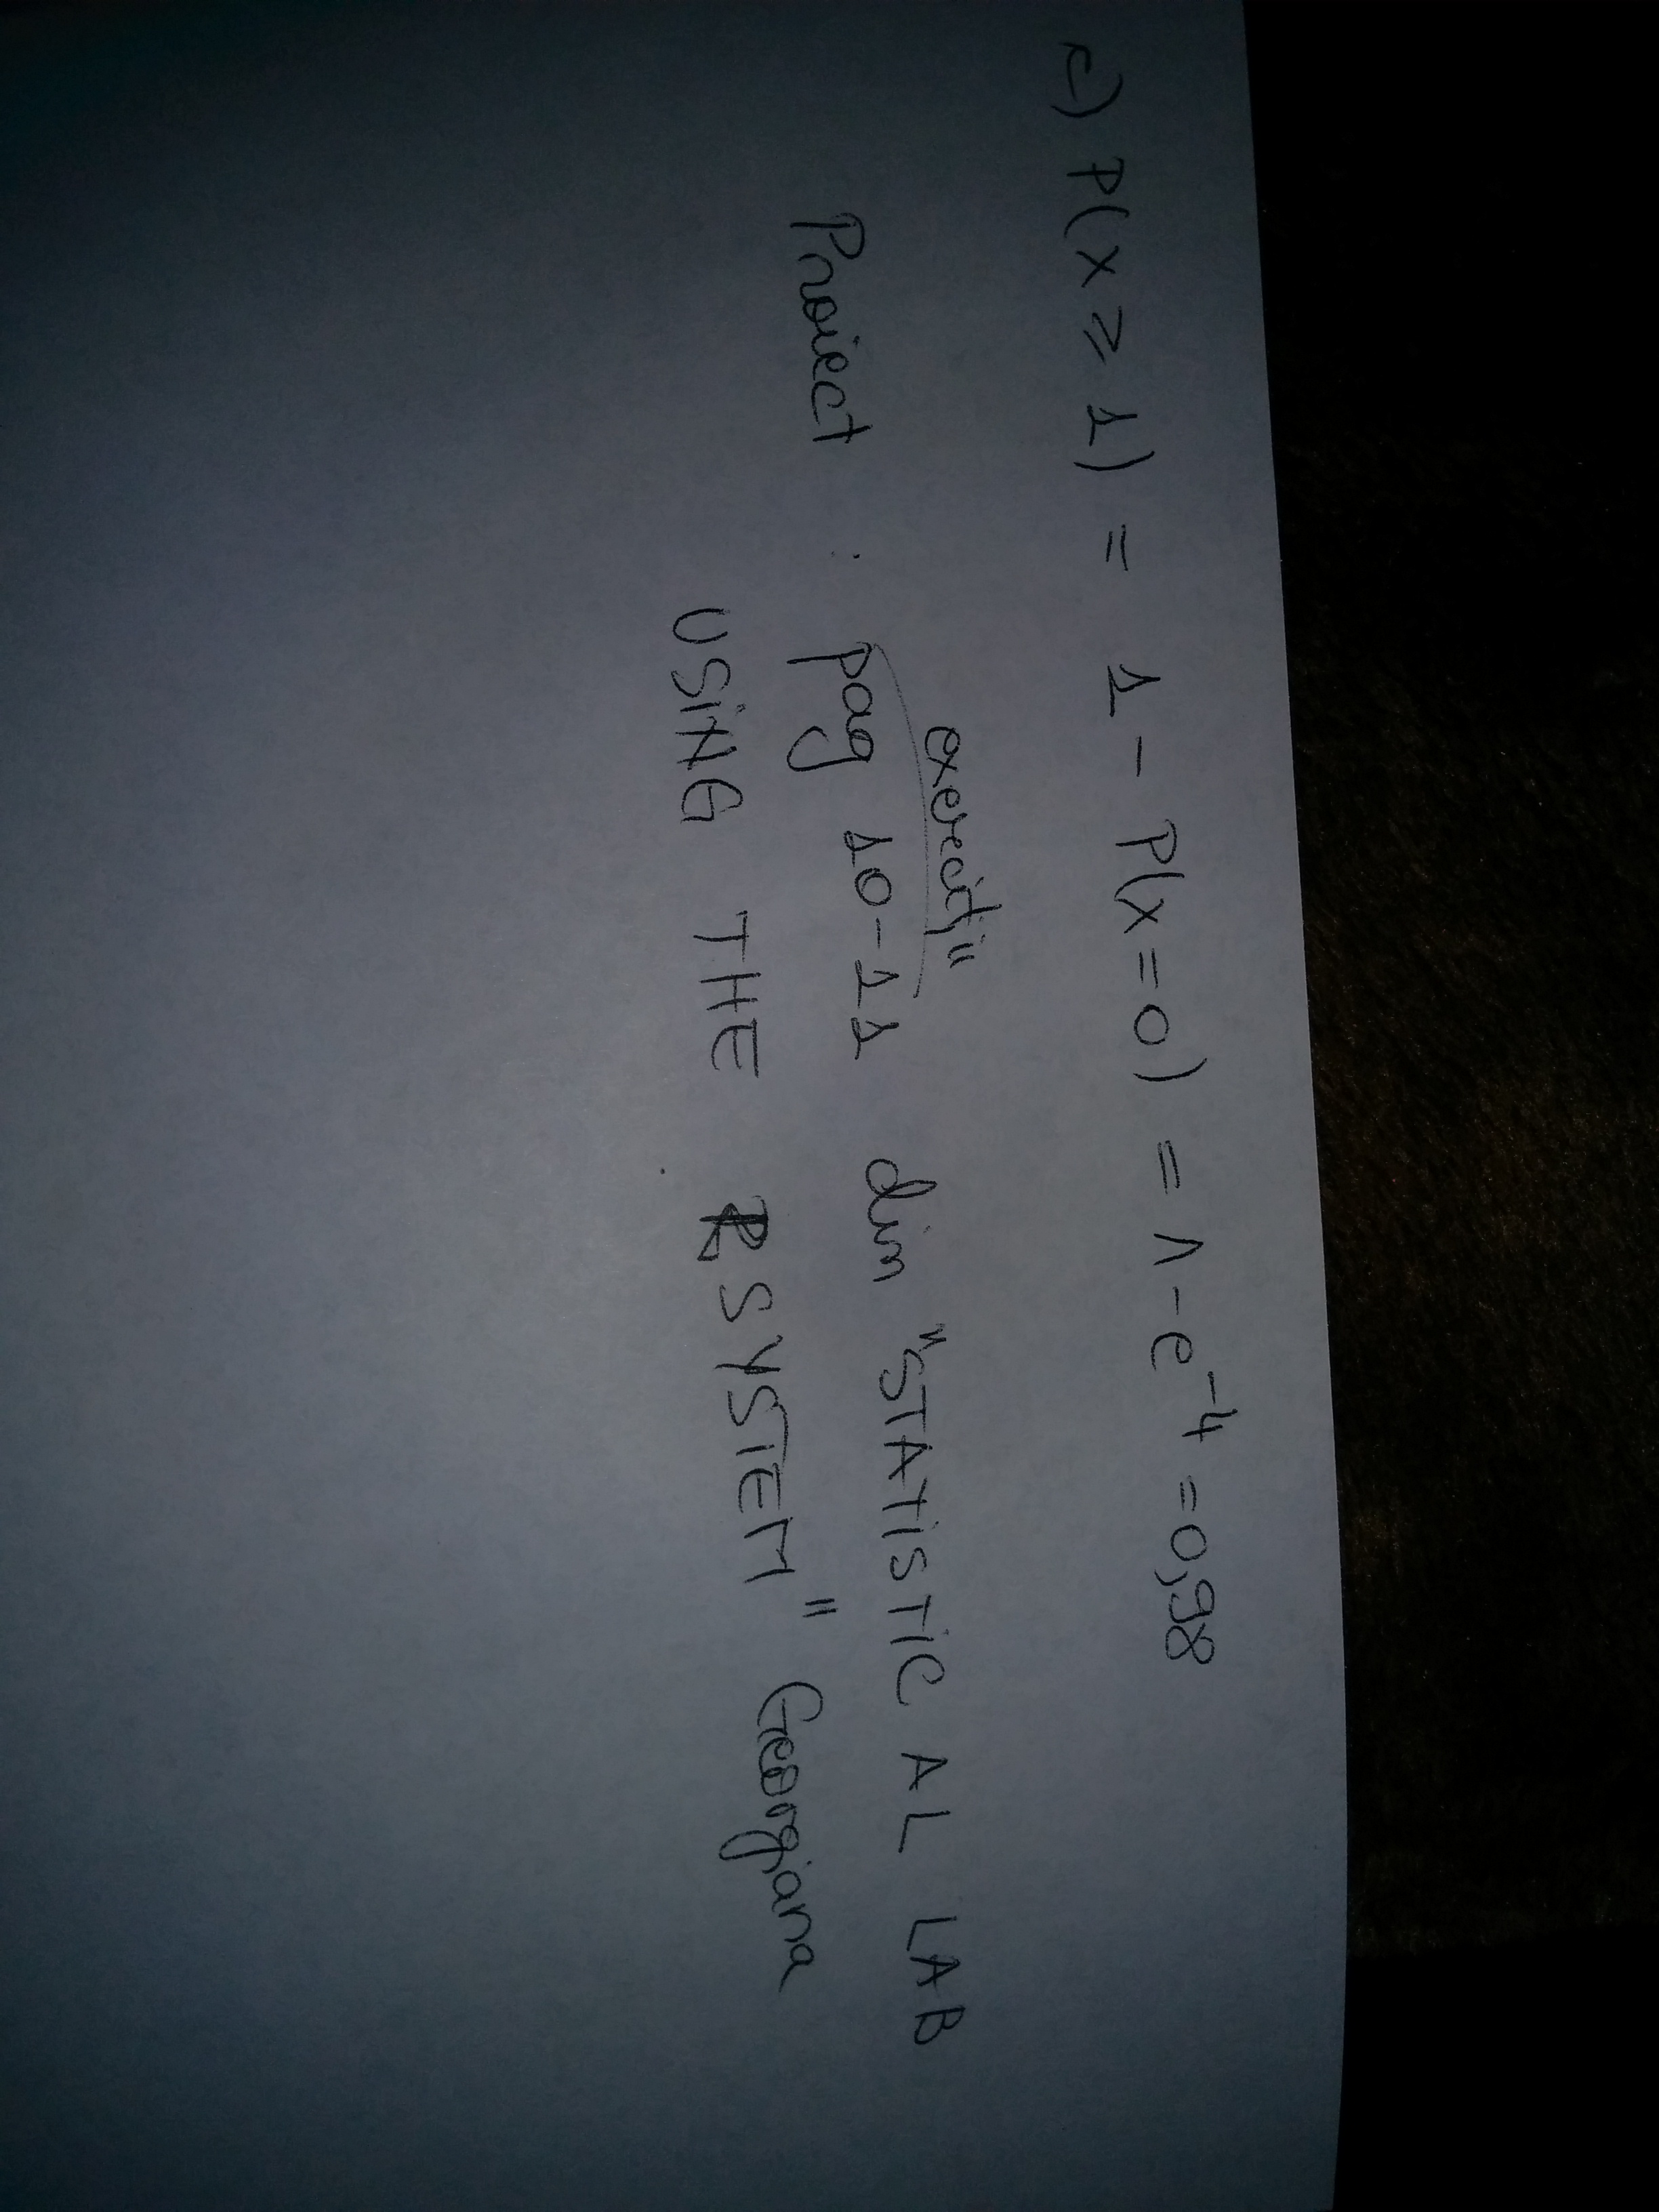 c) P(x ≥ 1) = 1 - P(x=0) = 1 - e^-4 = 0,98
exerciții
Proiect : pag 10-11 din "STATISTIC AL LAB
USING THE R SYSTEM" Georgiana